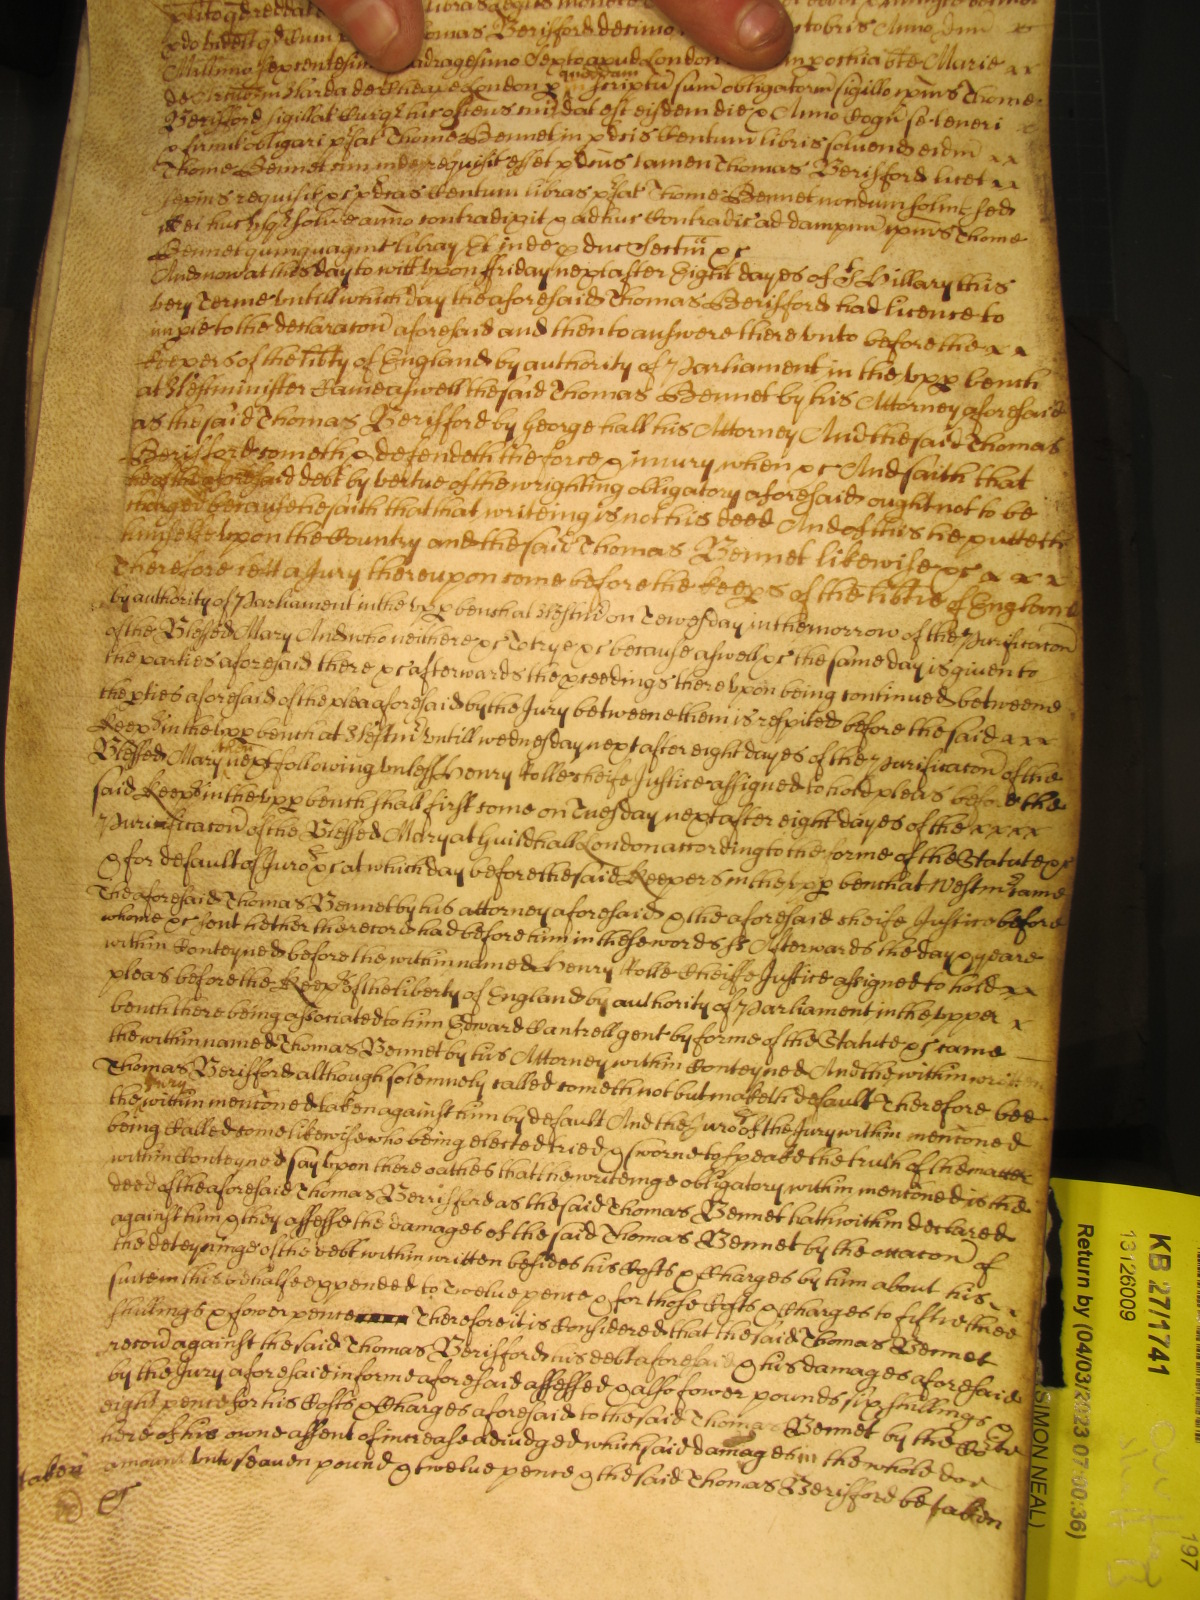 Thomas Berisford decimo
Millimo sexcentesimo quadragesimo Septo apud London in poch be Marie
de in Warda de Cheape London p quoddam scriptu suum obligatorm sigillo ipius Thome
Berisford sigillat Cur hic ostens cui dat est eisdem die & Anno Cogn se teneri
& firmit obligari pfat Thome Bennet in pdcis Centum libris solvend eidm
Thome Bennet cum inde requisit esset pdcus tamen Thomas Berisford licet
sepius requisit &c pdcas Centum libras pfat Thome Bennet nondum solvit sed
ei huc usq solve omnio contradixit & adhuc Contradic ad dampnu ipius Thome
Bennet quinquagint librar Et inde pduc Sectm &c
And now at this day to witt upon Friday next after Eight dayes of St Hillary this
very Terme untill which day the aforesaid Thomas Berisford had licence to
imple to the declaracon aforesaid and then to answere there unto before the x x
Keepers of the libty of England by authority of Parliament in the upp bench
at Westminister Came aswell the said Thomas Bennet by his Attorney aforesaid
as the said Thomas Berisford by George hall his Attorney And the said Thomas
Berisford cometh & defendeth the force & iniury when &c And saith that
he of the aforesaid debt by vertue of the wrighting obligatory aforesaid ought not to be
charged because he saith that that writeing is not his deed And of this he putteth
himselfe upon the Country and the said Thomas Bennet likewise &c x x x
Therefore lett a Jury thereupon come before the keeps of the libtie of England
by authority of Parliament in the upp bench at Westm on Tewesday in the morrow of the Purificacon
of the Blessed Mary And who neither &c To trye &c because aswell &c the same day is given to
the parties aforesaid there &c afterwards the pceedings there upon being continued betweene
the pties aforesaid of the plea aforesaid by the Jury betweene them is respited before the said x x x
Keeps in the upp bench at Westmr untill wednesday next after eight dayes of the Purificacon of the
Blessed Mary then next following unless Henry Rolle cheife Justice assigned to hold pleas before the
said Keeps in the upp bench shall first come on Tuesday next after eight dayes of the x x x x
Purificacon of the Blessed Mary at Guildhall London according to the forme of the Statute &c
& for default of Juro &c at which day before the said Keepers in the upp bench at Westmr came
The aforesaid Thomas Bennet by his attorney aforesaid & the aforesaid cheife Justice before
whome &c sent hether the record had before him in these words ss Afterwards the day & yeare
within Conteyned before the within named Henry Rolle Cheiffe Justice assigned to hold x x
pleas before the Keeps of the liberty of England by authority of Parliament in the upper x
bench there being associated to him Edward Cantrell gent by forme of the Statute &c came
the within named Thomas Bennet by his Attorney within Conteyned And the within written
Thomas Berisford although solemnely called cometh not but maketh default Therefore bee
the Jury within mentoned taken against him by default And the Juro of the Jury within mentoned
being Called come likewise who being elected tried & sworne to speake the truth of the matter
within Conteyned say upon there oathes that the writeinge obligatory within mentoned is the
deed of the aforesaid Thomas Berrisford as the said Thomas Bennet hath within declared
against him & they assesse the damages of the said Thomas Bennet by the occacon of
the deteyninge of the debt within written besides his Costs & Charges by him about his
suite in this behalfe expended to Twelve pence & for those Costs & Charges to fiftie three
shillings & fower pence Therefore it is Considered that the said Thomas Bennet
recov against the said Thomas Berisford his debt aforesaid & his damages aforesaid
by the Jury aforesaid in forme aforesaid assessed & also fower pounds six shillings &
eight pence for his Costs & Charges aforesaid to the said Thomas Bennet by the Corte
here of his owne assent of increase adiudged which said damages in the whole doe
amount unto seaven pound & twelve pence & the said Thomas Berisford be taken
taken
&c
KB 271/741
13126009
Return by (04/03/2023 07:00:36)
SIMON NEAL)
197